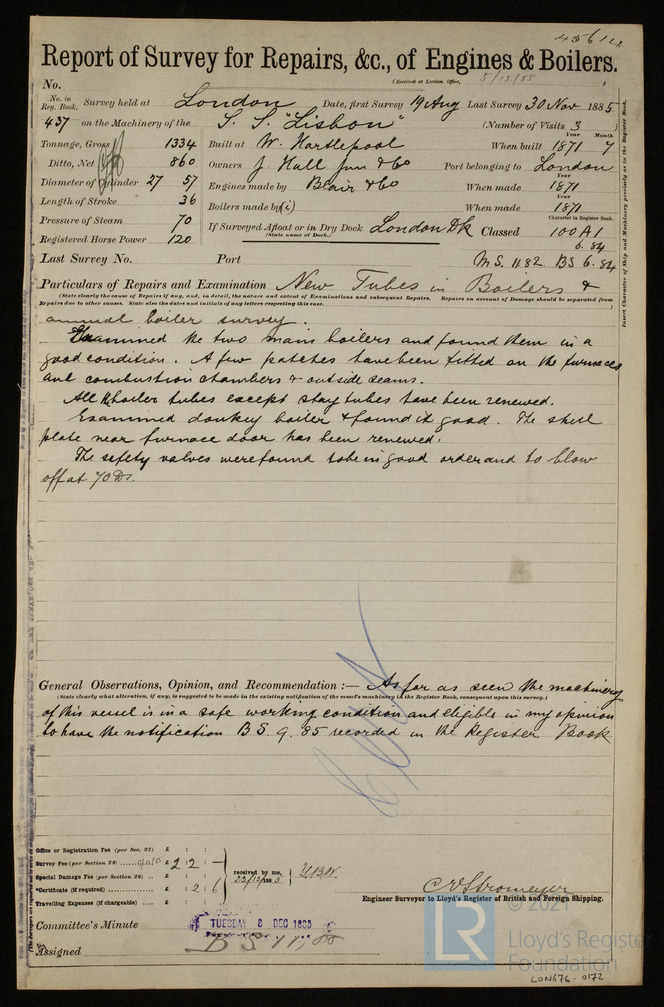 45614
Report of Survey for Repairs, &c., of Engines & Boilers.
(Received at London Office, 5/12/85 )
No.
No. in Reg. Book. Survey held at London Date, first Survey 19 Aug Last Survey 30 Nov 1885
437 on the Machinery of the S. S. "Lisbon" (Number of Visits 3
Tonnage, Gross 1334 Built at W. Hartlepool When built Year 1871 Month 7
Ditto, Net 860 Owners J. Hall Jun & Co Port belonging to London
Diameter of Cylinder 27 57 Engines made by Blair & Co When made Year 1871
Length of Stroke 36 Boilers made by (i) When made Year 1871
Pressure of Steam 70 If Surveyed Afloat or in Dry Dock London Dk Classed Character in Register Book. 100 A1
(State name of Dock.) 6.84
Registered Horse Power 120
Last Survey No. Port M.S. 11.82 BS 6.84
Insert Character of Ship and Machinery precisely as in the Register Book.
Particulars of Repairs and Examination New Tubes in Boilers &
(State clearly the cause of Repairs if any, and, in detail, the nature and extent of Examinations and subsequent Repairs. Repairs on account of Damage should be separated from
Repairs due to other causes. State also the dates and initials of any letters respecting this case.
annual boiler survey.
Examined the two main boilers and found them in a
good condition. A few patches have been fitted on the furnaces
and combustion chambers & outside seams.
All boiler tubes except stay tubes have been renewed.
Examined donkey boiler & found it good. The shell
plate near furnace door has been renewed.
The safety valves were found to be in good order and to blow
off at 70 lbs.
General Observations, Opinion, and Recommendation :— As far as seen the machinery
(State clearly what alteration, if any, is suggested to be made in the existing notification of the vessel's machinery in the Register Book, consequent upon this survey.)
of this vessel is in a safe working condition and eligible in my opinion
to have the notification B S. 9. 85 recorded in the Register Book
Office or Registration Fee (per Sec. 27) £ : :
Survey Fee (per Section 28) £ 2 : 2 : —
Special Damage Fee (per Section 28) £ : :
*Certificate (if required) £ : 2 : 6
Travelling Expenses (if chargeable) £ : :
received by me,
23/12/1885
C.E. Stromeyer
Engineer Surveyor to Lloyd's Register of British and Foreign Shipping.
Committee's Minute TUESDAY 8 DEC 1885
Assigned B S 11,85
© 2021
LR Lloyd's Register
Foundation
LON676-0172